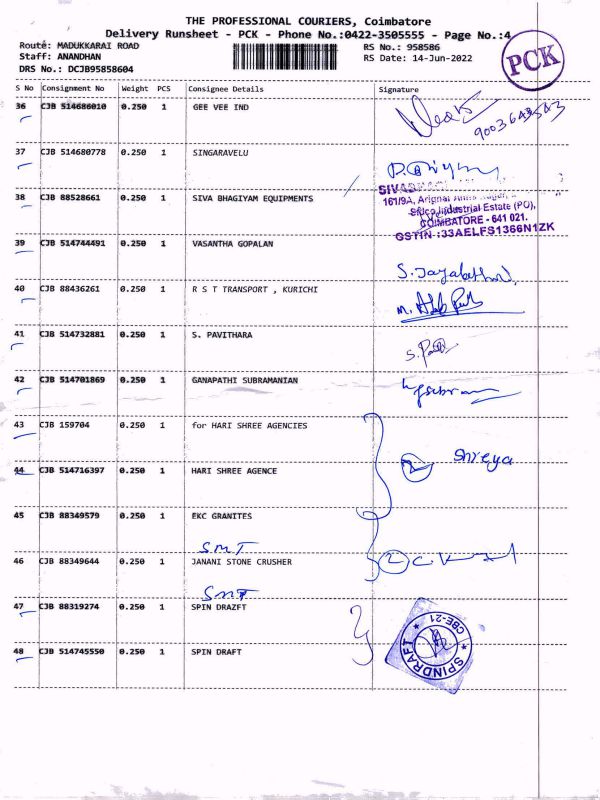 THE PROFESSIONAL COURIERS, Coimbatore
Delivery Runsheet - PCK - Phone No.:0422-3505555 - Page No.:4
Route: MADUKKARAI ROAD
RS No.: 958586
Staff: ANANDHAN
RS Date: 14-Jun-2022
DRS No.: DCJB95858604
PCK
S No Consignment No Weight PCS Consignee Details Signature
36 CJB 514686010 0.250 1 GEE VEE IND
9003643543
37 CJB 514680778 0.250 1 SINGARAVELU
38 CJB 88528661 0.250 1 SIVA BHAGIYAM EQUIPMENTS
161/9A,
Sidco Industrial Estate (PO),
COIMBATORE - 641 021.
GSTIN :33AELFS1366N1ZK
39 CJB 514744491 0.250 1 VASANTHA GOPALAN
40 CJB 88436261 0.250 1 R S T TRANSPORT , KURICHI
41 CJB 514732881 0.250 1 S. PAVITHARA
42 CJB 514701869 0.250 1 GANAPATHI SUBRAMANIAN
43 CJB 159704 0.250 1 for HARI SHREE AGENCIES
2 Shreya
44 CJB 514716397 0.250 1 HARI SHREE AGENCE
45 CJB 88349579 0.250 1 EKC GRANITES
SMT
46 CJB 88349644 0.250 1 JANANI STONE CRUSHER
2
SMT
47 CJB 88319274 0.250 1 SPIN DRAZFT
48 CJB 514745550 0.250 1 SPIN DRAFT
SPINDRAFT * CBE-21 *